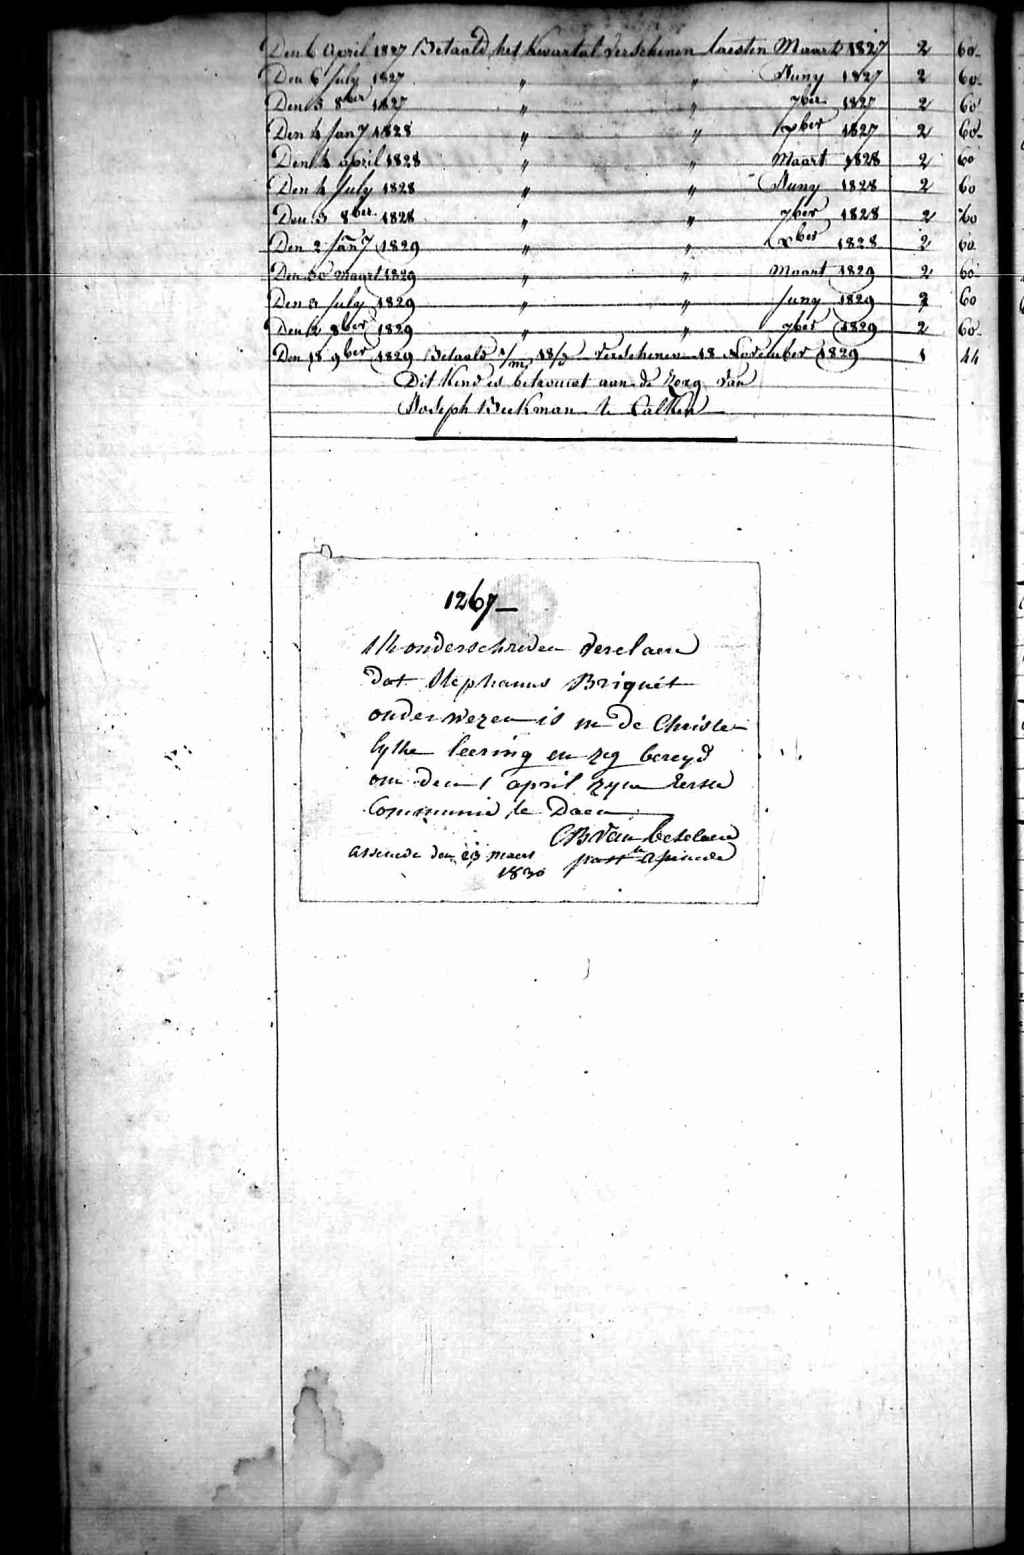 Den 6 April 1827 Betaald het Kwartal verschenen laesten Maart 1827 2 60
Den 6 July 1827 " " Juny 1827 2 60
Den 5 8ber 1827 " " 7ber 1827 2 60
Den 4 Jany 1828 " " xber 1827 2 60
Den 4 april 1828 " " Maart 1828 2 60
Den 4 July 1828 " " Juny 1828 2 60
Den 3 8ber 1828 " " 7ber 1828 2 60
Den 2 Jany 1829 " " xber 1828 2 60
Den 30 maart 1829 " " Maart 1829 2 60
Den 3 July 1829 " " Juny 1829 2 60
Den 2 8ber 1829 " " 7ber 1829 2 60
Den 18 9ber 1829 Betaald 1/m 18/d verschenen 18 November 1829 1 44
Dit Kind is betrouwt aan de zorg van
Joseph Beekman te Calken
1267
Ik onderschreven verclaere
dat Stephanus Briquét
onderwezen is in de Christe
lyke leering en zig bereyd
om den 1 april zyne eerste
Communie te Doen
CB Van
assenede den 23 maert past
1830